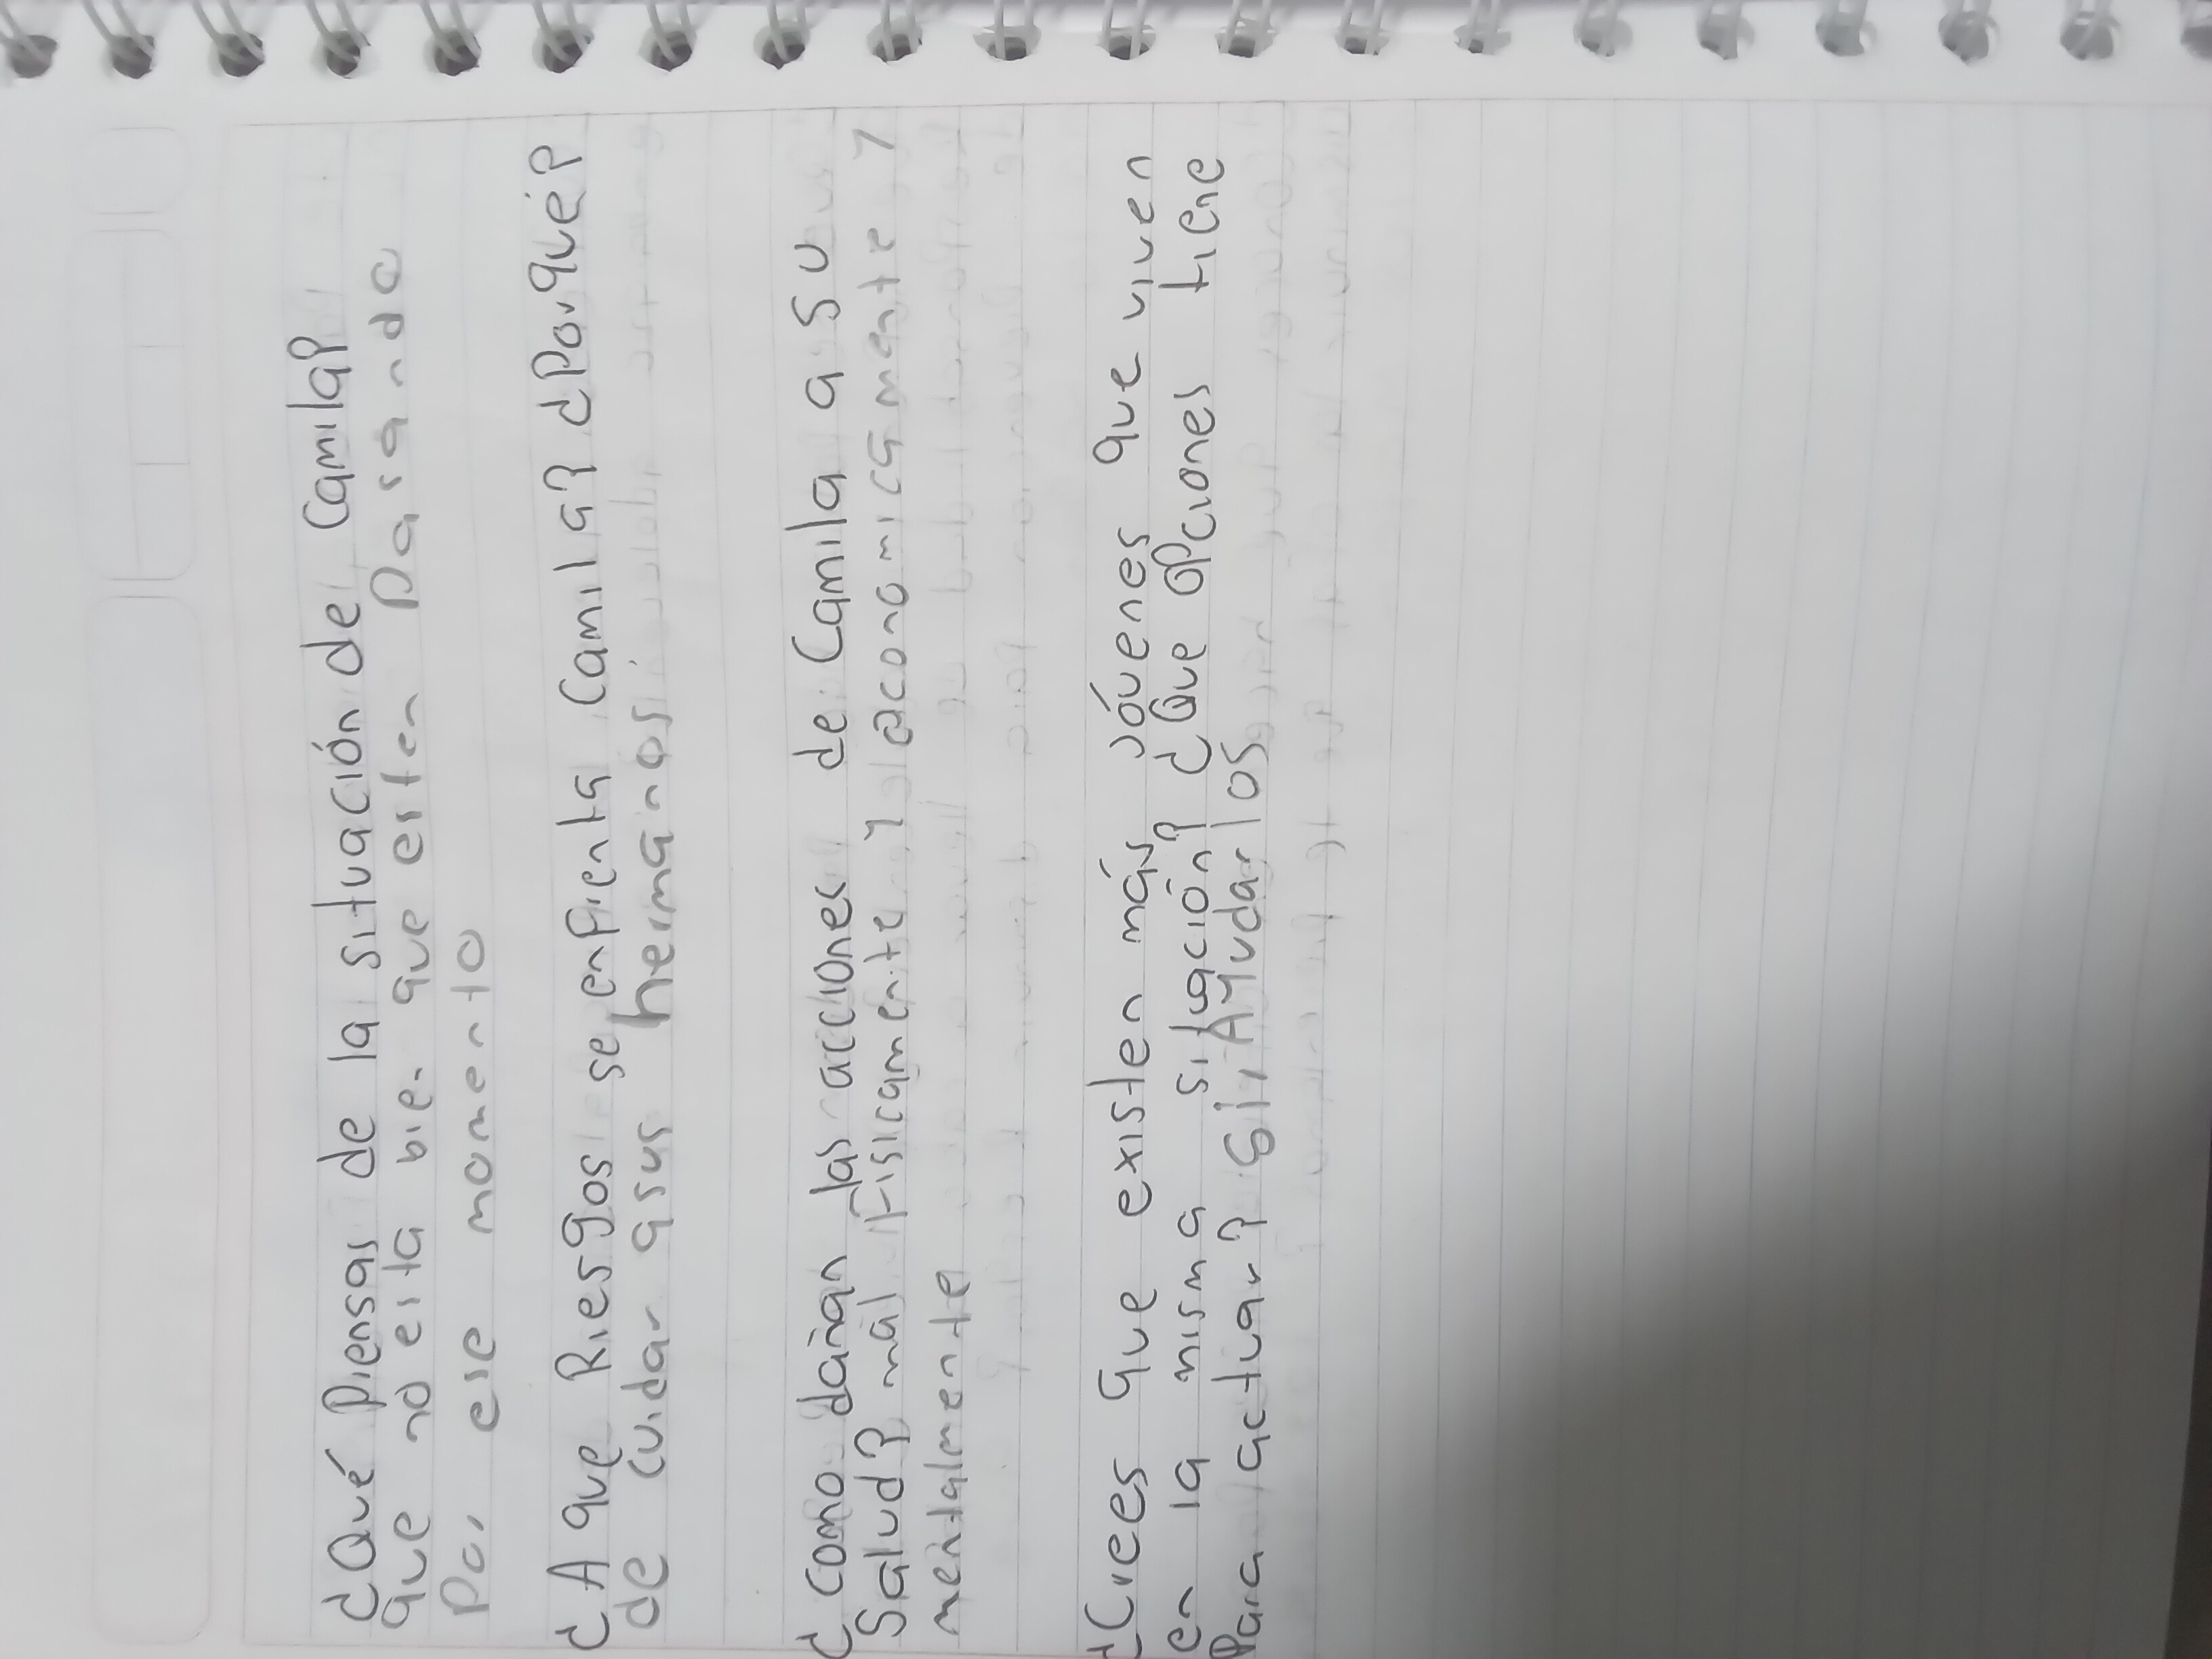 ¿Qué piensas de la situación de Camila?
que no esta bien que esten Pasando
Por ese momento
¿A que Riesgos se enfrenta Camila? ¿Porqué?
de cuidar asus hermanos
¿como dañan las acciones de Camila a su
Salud? mal Fisicamente y economicamente y
mentalmente
¿Crees que existen más Jóvenes que viven
en la misma situación? ¿Que opciones tiene
Para actuar? Si, Ayudarlos